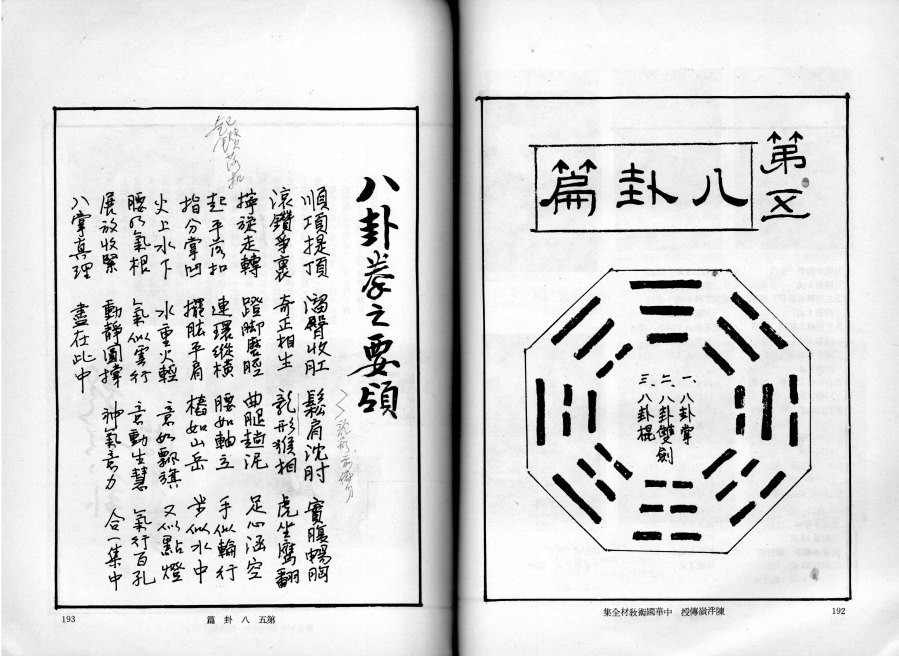 第五
八卦篇
一、八卦掌
二、八卦雙劍
三、八卦棍
陳泮嶺傳授 中華國術敎材全集
192
八卦拳之要領
順項提頂 溜臀收肛 鬆肩沈肘 實腹暢胸
滾鑽爭裹 奇正相生 龍形猴相 虎坐鷹翻
擰旋走轉 蹬脚磨脛 曲腿趟泥 足心涵空
起平落扣 連環縱橫 腰如軸立 手似輪行
指分掌凹 擺肱平肩 樁如山岳 步似水中
火上水下 水重火輕 意如飄旗 又似點燈
腰乃氣根 氣似雲行 意動生慧 氣行百孔
展放收緊 動靜圓撐 神氣意力 合一集中
八掌真理 盡在此中
起鑽落扣
第五 八卦篇
193